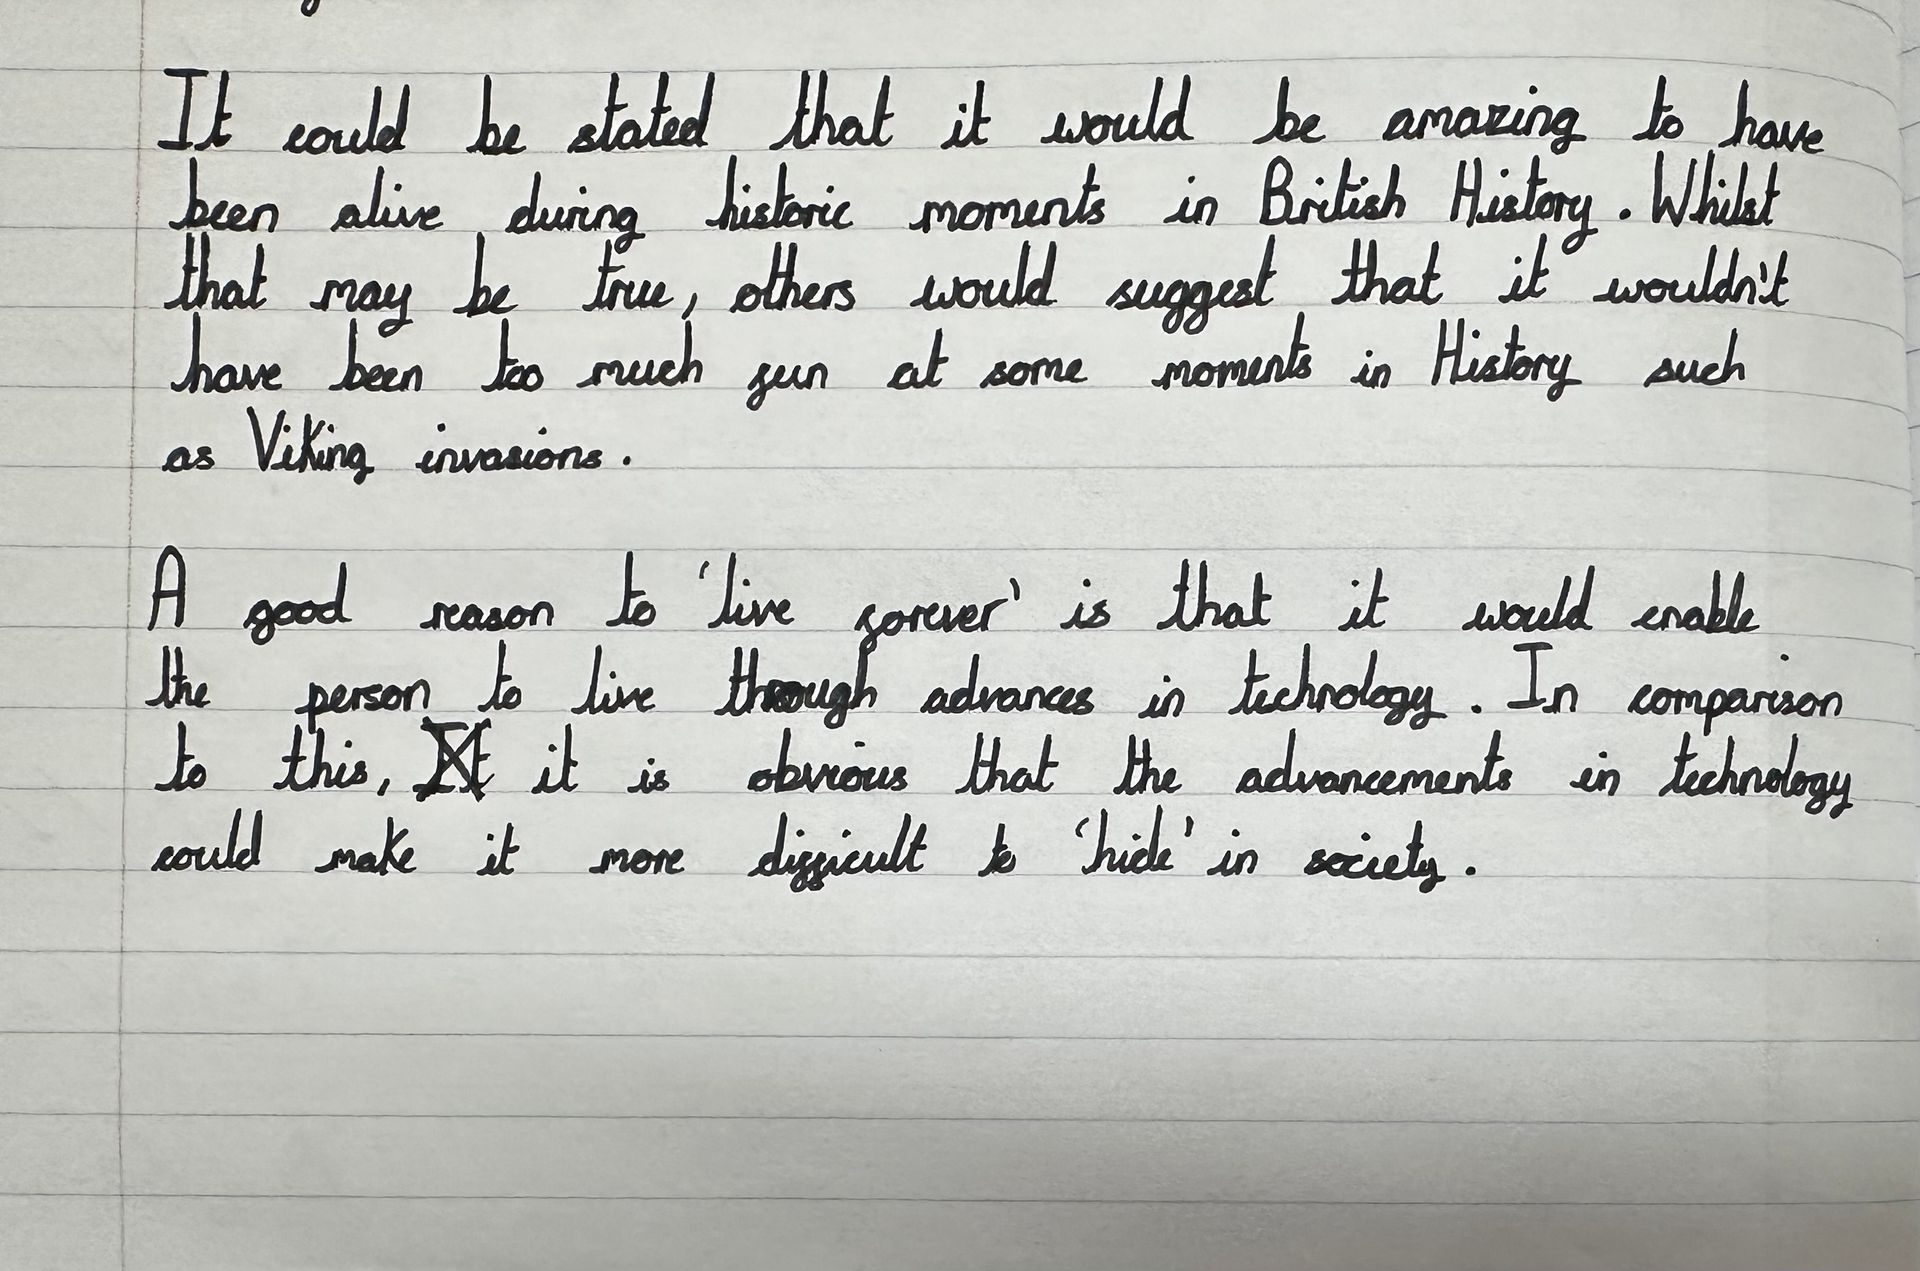 It could be stated that it would be amazing to have
been alive during historic moments in British History. Whilst
that may be true, others would suggest that it wouldn't
have been too much fun at some moments in History such
as Viking invasions.
A good reason to 'live forever' is that it would enable
the person to live through advances in technology. In comparison
to this, it is obvious that the advancements in technology
could make it more difficult to 'hide' in society.